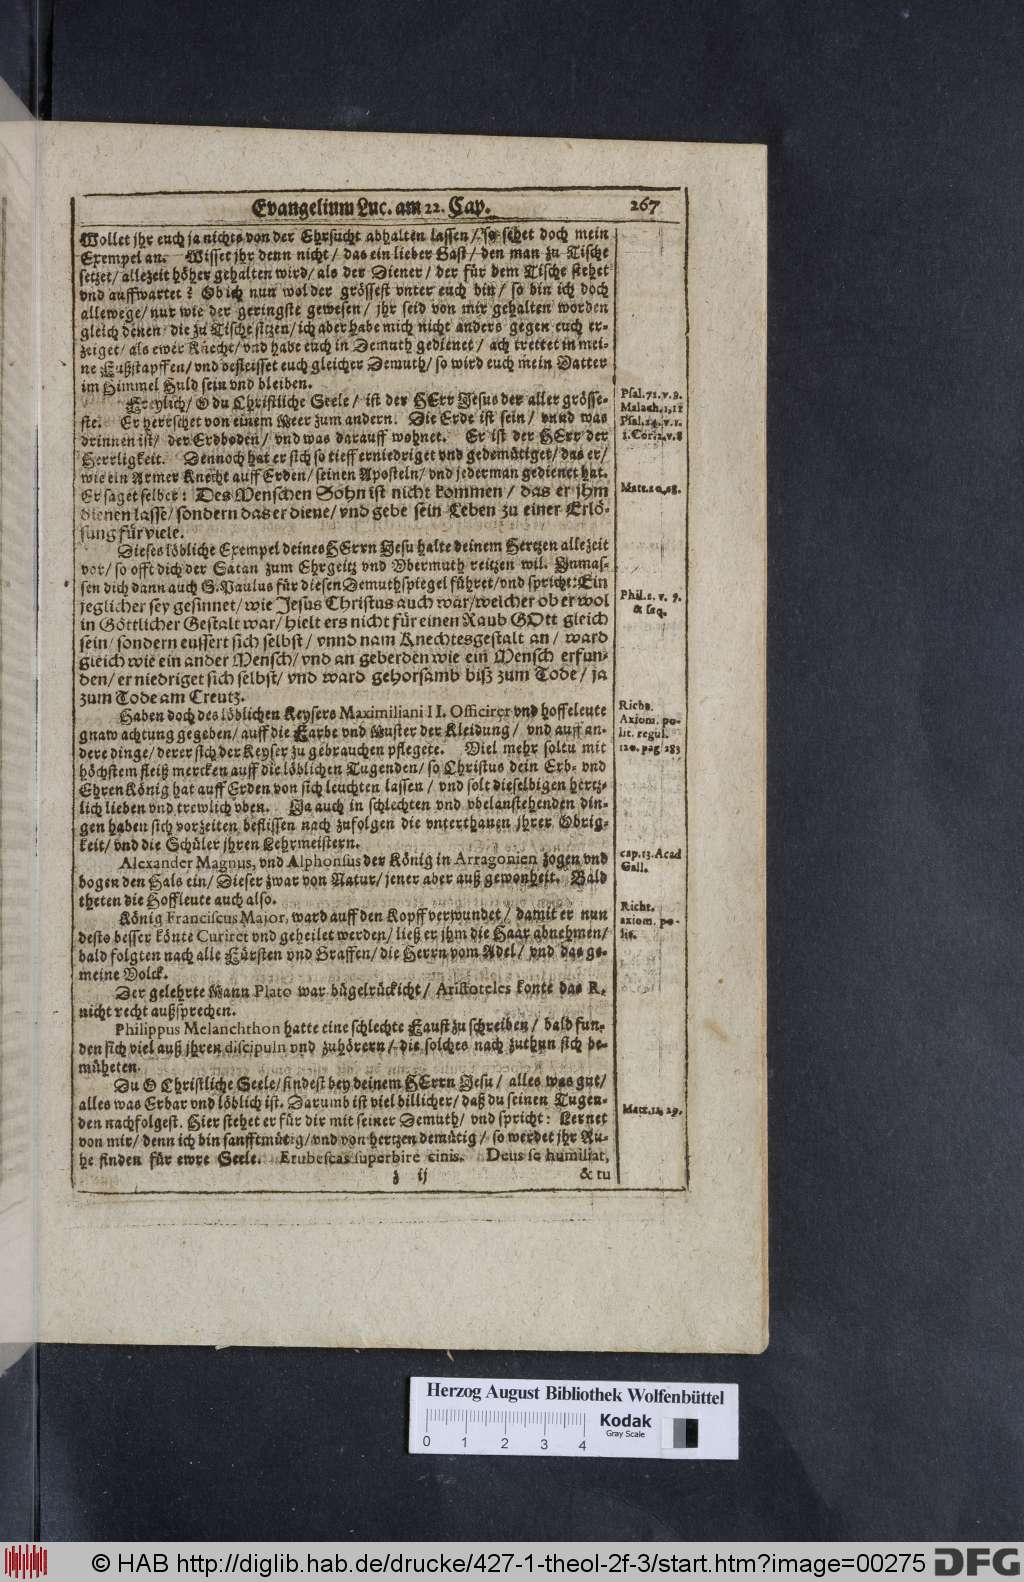 Evangelium Luc. am 22. Cap. 267
Wollet jhr euch ja nichts von der Ehrsucht abhalten lassen / so sehet doch mein
Exempel an. Wisset jhr denn nicht / das ein lieber Gast / den man zu Tische
setzet / allezeit höher gehalten wird / als der Diener / der für dem Tische stehet
vnd auffwartet? Ob ich nun wol der grössest vnter euch bin / so bin ich doch
allewege / nur wie der geringste gewesen / jhr seid von mir gehalten worden
gleich denen die zu Tische sitzen / ich aber habe mich nicht anders gegen euch er-
zeiget / als ewer Knecht / vnd habe euch in Demuth gedienet / ach trettet in mei-
ne Fußstapffen / vnd befleisset euch gleicher Demuth / so wird euch mein Vatter
im Himmel Huld sein vnd bleiben.
Freylich / O du Christliche Seele / ist der HErr Jesus der aller grösse-
ste. Er herrschet von einem Meer zum andern. Die Erde ist sein / vnnd was
drinnen ist / der Erdboden / vnd was darauff wohnet. Er ist der HErr der
Herrligkeit. Dennoch hat er sich so tieff erniedriget vnd gedemütiget / das er /
wie ein Armer Knecht auff Erden / seinen Aposteln / vnd jederman gedienet hat.
Er saget selber: Des Menschen Sohn ist nicht kommen / das er jhm
dienen lasse / sondern das er diene / vnd gebe sein Leben zu einer Erlö-
sung für viele.
Dieses löbliche Exempel deines HErrn Jesu halte deinem Hertzen allezeit
vor / so offt dich der Satan zum Ehrgeitz vnd Vbermuth reitzen wil. Inmas-
sen dich dann auch S. Paulus für diesen Demuthspiegel führet / vnd spricht: Ein
jeglicher sey gesinnet / wie Jesus Christus auch war / welcher ob er wol
in Göttlicher Gestalt war / hielt ers nicht für einen Raub GOtt gleich
sein / sondern eussert sich selbst / vnnd nam Knechtesgestalt an / ward
gleich wie ein ander Mensch / vnd an geberden wie ein Mensch erfun-
den / er niedriget sich selbst / vnd ward gehorsamb biß zum Tode / ja
zum Tode am Creutz.
Haben doch des löblichen Keysers Maximiliani II. Officirer vnd hoffeleute
gnaw achtung gegeben / auff die Farbe vnd Muster der Kleidung / vnd auff an-
dere dinge / derer sich der Keyser zu gebrauchen pflegete. Viel mehr soltu mit
höchstem fleiß mercken auff die löblichen Tugenden / so Christus dein Erb- vnd
Ehren König hat auff Erden von sich leuchten lassen / vnd solt dieselbigen hertz-
lich lieben vnd trewlich vben. Ja auch in schlechten vnd vbelanstehenden din-
gen haben sich vorzeiten beflissen nach zufolgen die vnterthanen jhrer Obrig-
keit / vnd die Schüler jhren Lehrmeistern.
Alexander Magnus, vnd Alphonsus der König in Arragonien zogen vnd
bogen den Hals ein / Dieser zwar von Natur / jener aber auß gewonheit. Bald
theten die Hoffleute auch also.
König Franciscus Major, ward auff den Kopff verwundet / damit er nun
desto besser könte Curiret vnd geheilet werden / ließ er jhm die Haar abnehmen /
bald folgten nach alle Fürsten vnd Graffen / die Herrn vom Adel / vnd das ge-
meine Volck.
Der gelehrte Mann Plato war bügelrückicht / Aristoteles konte das R.
nicht recht außsprechen.
Philippus Melanchthon hatte eine schlechte Faust zu schreiben / bald fun-
den sich viel auß jhren discipuln vnd zuhörern / die solches nach zuthun sich be-
müheten.
Du O Christliche Seele / findest bey deinem HErrn Jesu / alles was gut /
alles was Erbar vnd löblich ist. Darumb ist viel billicher / daß du seinen Tugen-
den nachfolgest. Hier stehet er für dir mit seiner Demuth / vnd spricht: Lernet
von mir / denn ich bin sanfftmütig / vnd von hertzen demütig / so werdet jhr Ru-
he finden für ewre Seele. Erubescas superbire cinis. Deus se humiliat,
z ij & tu
Psal. 72. v. 8.
Malach. 1, 11
Psal. 24. v. 1.
1. Cor: 2. v. 8
Matt. 20, 28.
Phil. 2. v. 5.
& seq.
Richt.
Axiom. po-
lit. regul.
120. pag 283
cap. 13. Acad
Gall.
Richt.
axiom. po-
lit.
Matt. 11, 29.
Herzog August Bibliothek Wolfenbüttel
Kodak
Gray Scale
0 1 2 3 4
© HAB http://diglib.hab.de/drucke/427-1-theol-2f-3/start.htm?image=00275
DFG